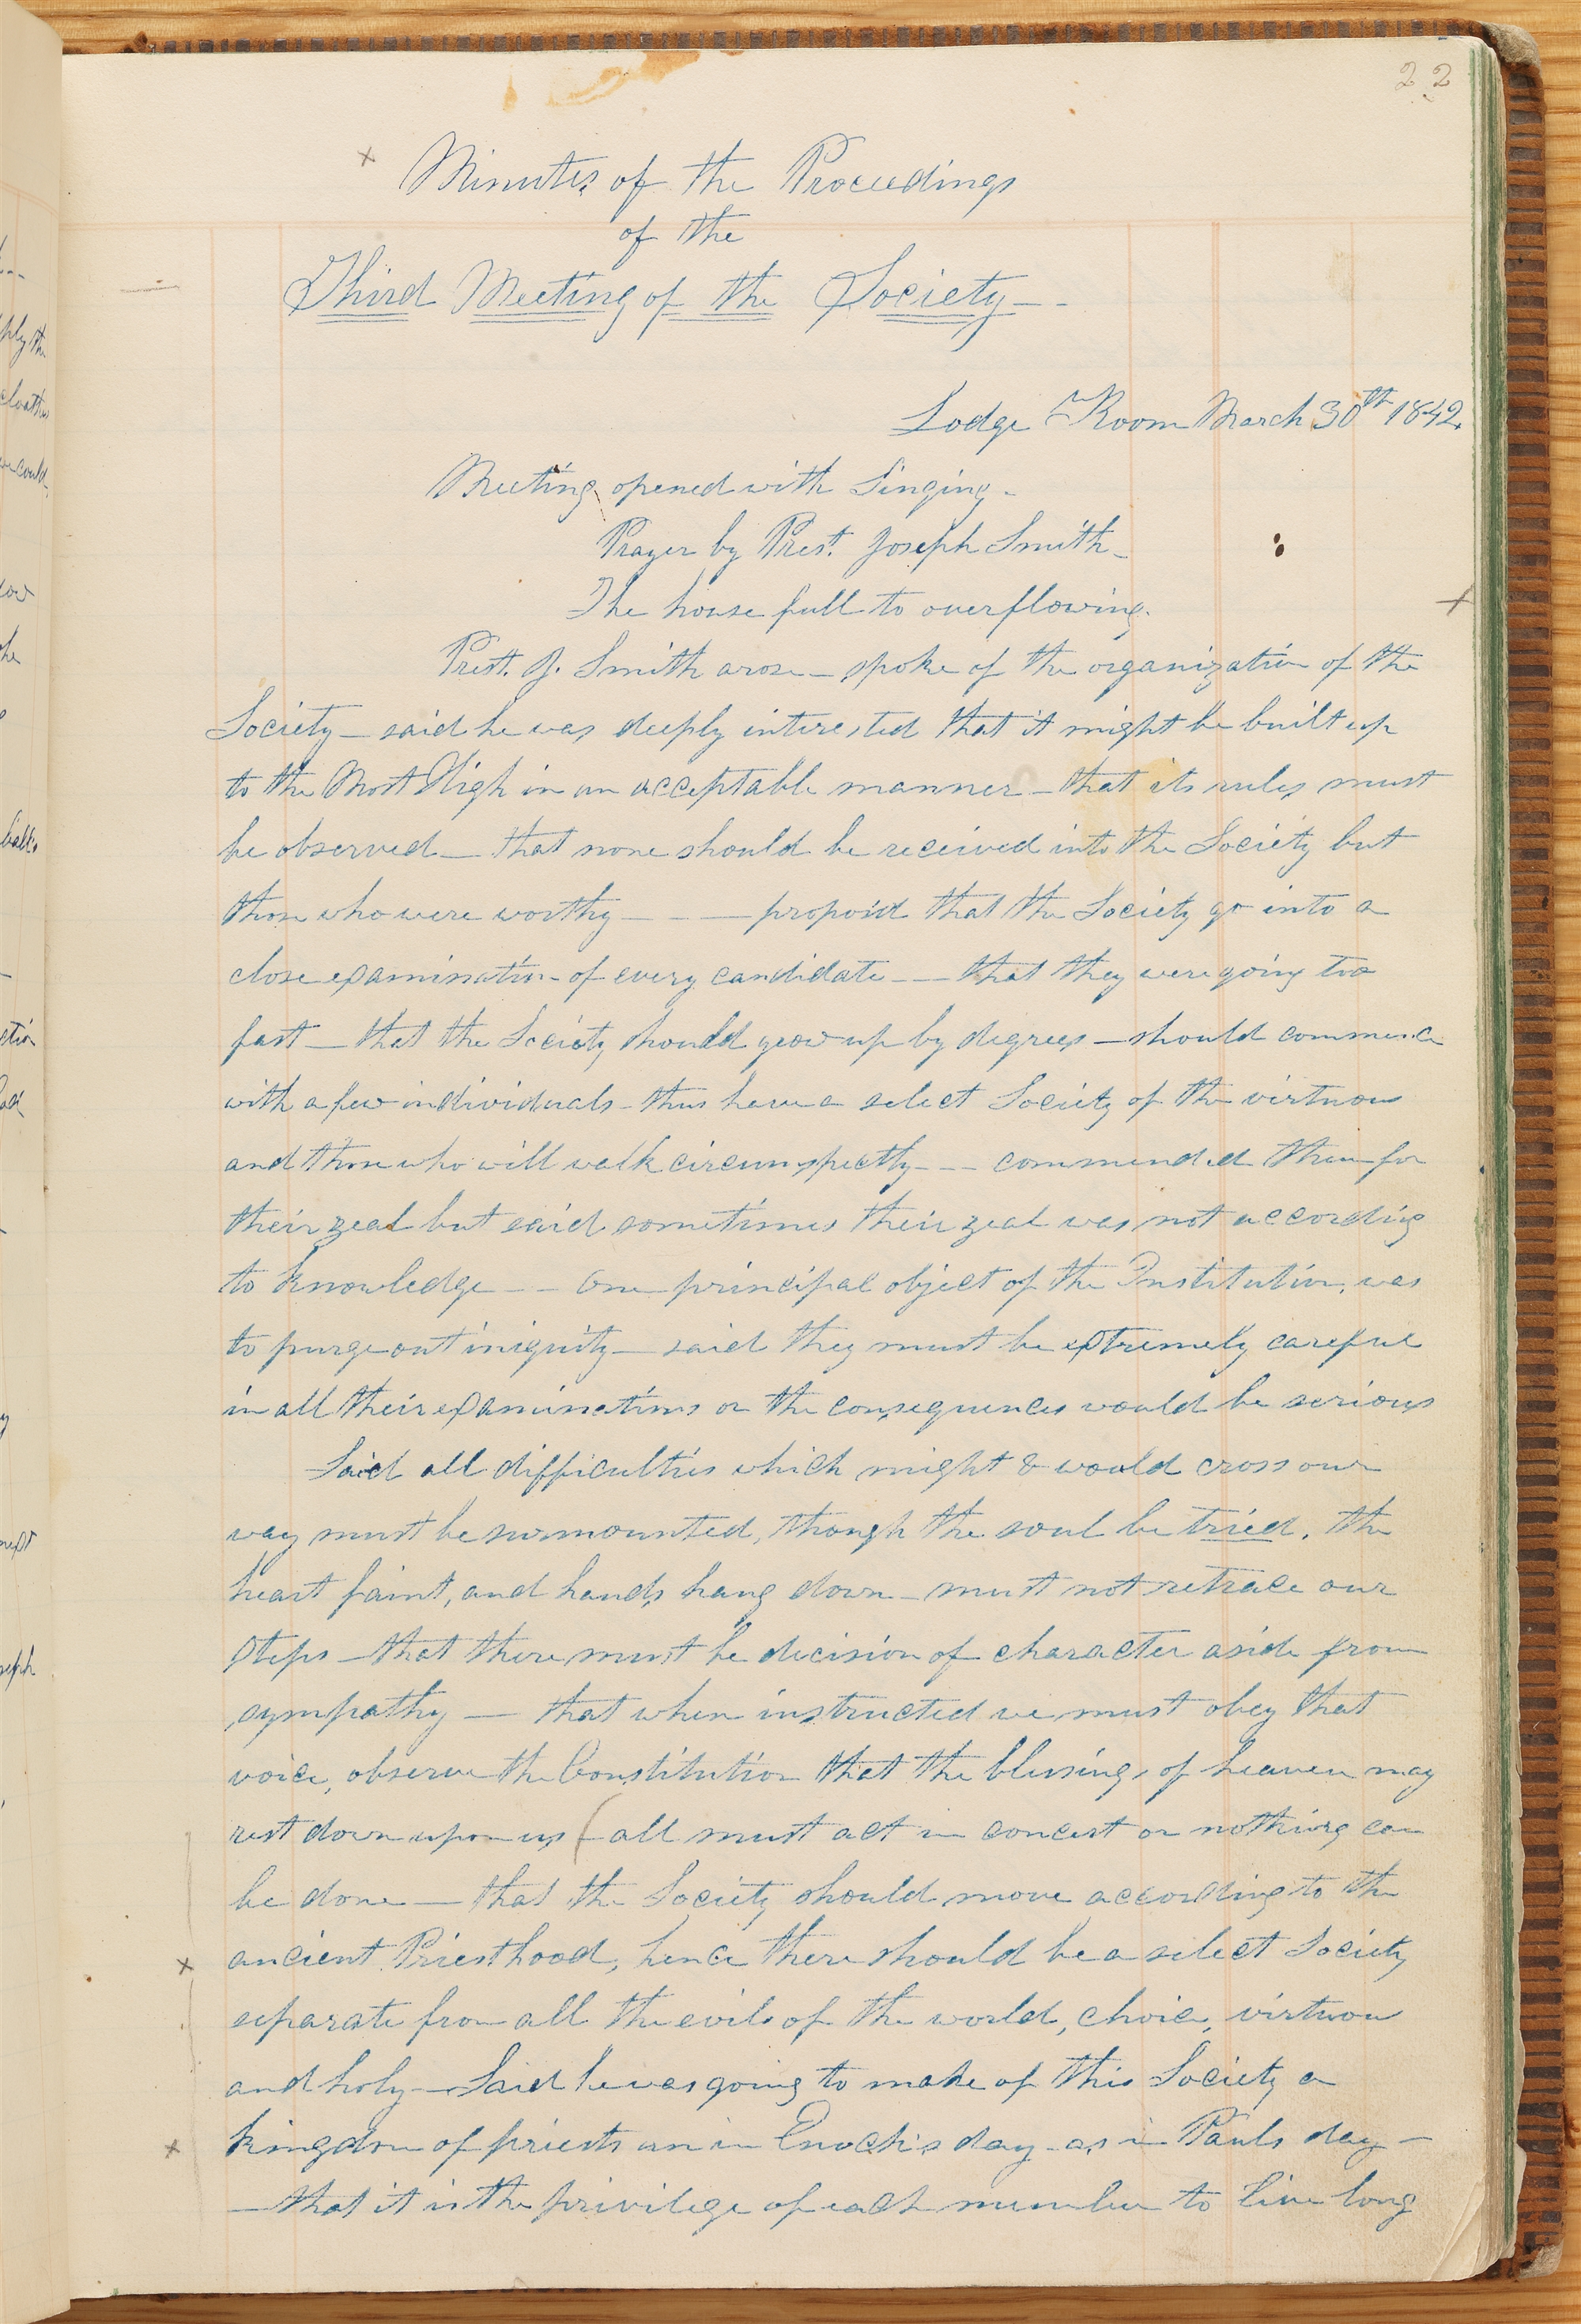 22
Minutes of the Proceedings
of the
Third Meeting of the Society
Lodge Room March 30th 1842.
Meeting opened with Singing-
Prayer by Prest. Joseph Smith-
The house full to overflowing.
Prest. J. Smith arose — spoke of the organization of the
Society — said he was deeply interested that it might be built up
to the Most High in an acceptable manner — that its rules must
be observed — that none should be received into the Society but
those who were worthy — — — propos'd that the Society go into a
close examination of every candidate — — that they were going too
fast — that the Society should grow up by degrees — should commence
with a few individuals — thus have a select Society of the virtuous
and those who will walk circumspectly — — commended them for
their zeal but said sometimes their zeal was not according
to knowledge — — One principal object of the Institution, was
to purge out iniquity — said they must be extremely careful
in all their examinations or the consequences would be serious
Said all difficulties which might & would cross our
way must be surmounted, though the soul be tried, the
heart faint, and hands hang down — must not retrace our
steps — that there must be decision of character aside from
sympathy — that when instructed we must obey that
voice, observe the Constitution that the blessings of heaven may
rest down upon us — all must act in concert or nothing can
be done — that the Society should move according to the
ancient Priesthood, hence there should be a select Society
separate from all the evils of the world, choice, virtuou
and holy — Said he was going to make of this Society a
kingdom of priests an in Enoch's day — as in Pauls day —
— that it is the privilege of each member to live long